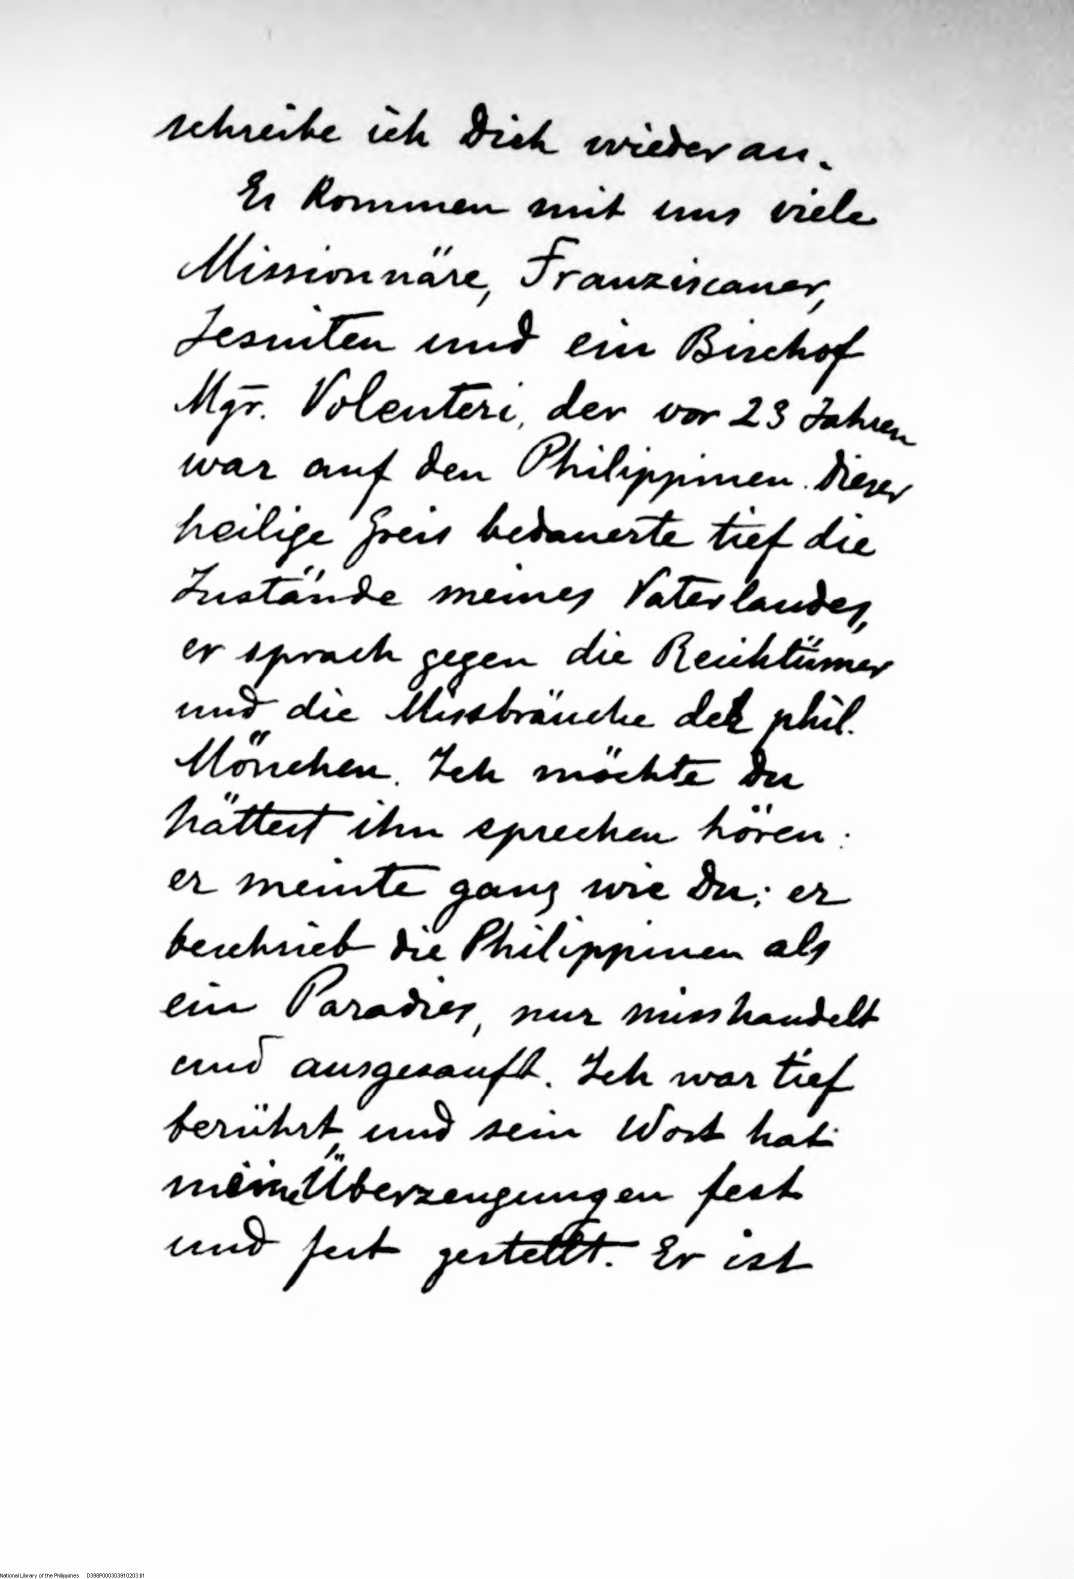 schreibe ich Dich wieder an.
Es kommen mit uns viele
Missionnäre, Franziscaner,
Jesuiten und ein Bischof
Mgr. Volenteri, der vor 23 Jahren
war auf den Philippinen. Dieser
heilige Greis bedauerte tief die
Zustände meines Vaterlandes,
er sprach gegen die Reichtümer
und die Missbräuche der phil.
Mönchen. Ich möchte Du
hättest ihn sprechen hören:
er meinte ganz wie Du; er
beschrieb die Philippinen als
ein Paradies, nur misshandelt
und ausgesauft. Ich war tief
berührt, und sein Wort hat
meine Überzeugungen fest
und fest gestellt. Er ist
National Library of the Philippines D398P000303910203.01